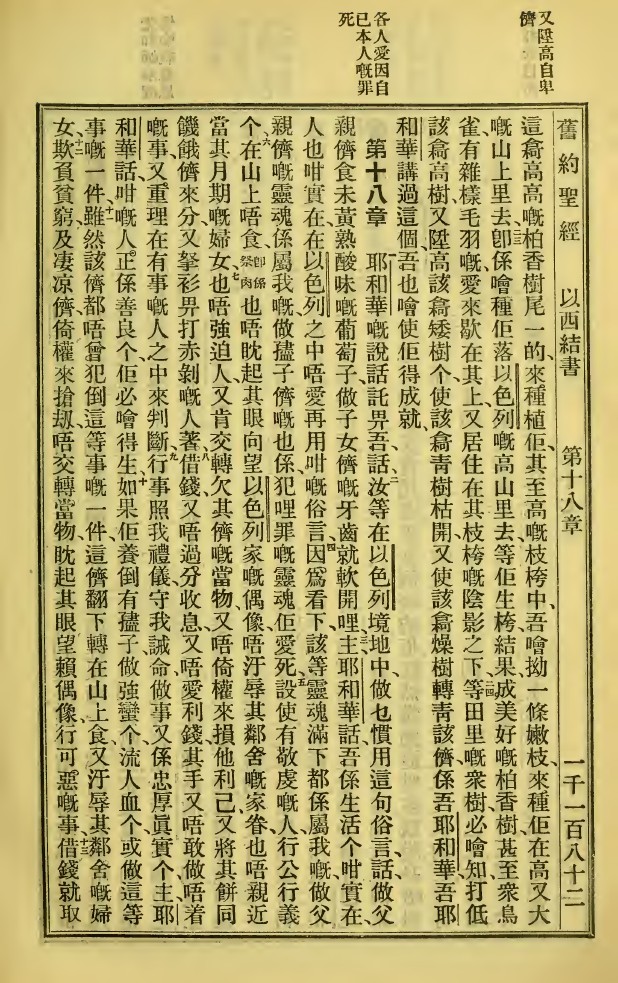 又陞高自卑
儕
各人愛因自
己本人嘅罪
死
舊約聖經　以西結書　第十八章　一千一百八十二
這翕高高嘅柏香樹尾一的、來種植佢、其至高嘅枝栲中、吾噲拗一條嫩枝、來種佢在高又大
嘅山上里去、二三卽係噲種佢落以色列嘅高山里去、等佢生栲、結果成美好嘅柏香樹、甚至衆鳥
雀、有雜樣毛羽嘅、愛來歇在其上、又居住在其枝栲嘅陰影之下、二四等田里嘅衆樹必噲知、打低
該翕高樹、又陞高該翕矮樹个、使該翕青樹枯開、又使該翕燥樹轉青該儕、係吾耶和華、吾耶
和華講過這個、吾也噲使佢得成就、
第十八章　一耶和華嘅說話託畀吾、話、二汝等在以色列境地中、做也慣用這句俗言、話、做父
親儕食未黃熟酸味嘅葡萄子、做子女儕嘅牙齒就軟開哩、三主耶和華話、吾係生活个、咁實在、
人也咁實在、在以色列之中唔愛再用咁嘅俗言、四因爲看下、該等靈魂滿下都係屬我嘅、做父
親儕嘅靈魂係屬我嘅、做孻子儕嘅也係、犯哩罪嘅靈魂、佢愛死、五設使有敬虔嘅人、行公行義
个、六在山上唔食、卽係祭肉也唔眈起其眼向望以色列家嘅偶像、唔汙辱其鄰舍嘅家眷、也唔親近
當其月期嘅婦女、七也唔強迫人、又肯交轉欠其儕嘅當物、又唔倚權來損他利己、又將其餅同
饑餓儕來分、又拏衫畀打赤剝嘅人著、八借錢又唔過分收息、又唔愛利錢、其手又唔敢做唔着
嘅事、又重理在有事嘅人之中來判斷、九行事照我禮儀、守我誡命做事、又係忠厚眞實个、主耶
和華話、咁嘅人正係善良个、佢必噲得生、十如果佢養倒有孻子、做強蠻个、流人血个、或做這等
事嘅一件、十一雖然該儕都唔曾犯倒這等事嘅一件、這儕翻下轉在山上食、又汙辱其鄰舍嘅婦
女、十二欺負貧窮、及淒凉儕、倚權來搶刼、唔交轉當物、眈起其眼望賴偶像、行可惡嘅事、十三借錢就取